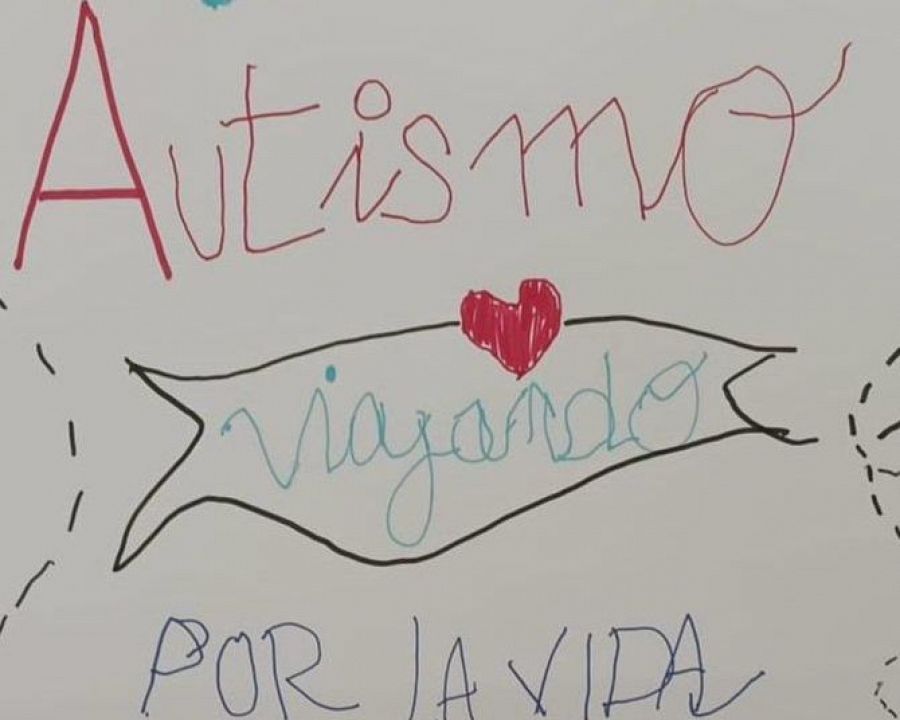 Autismo
viajando
POR LA VIDA